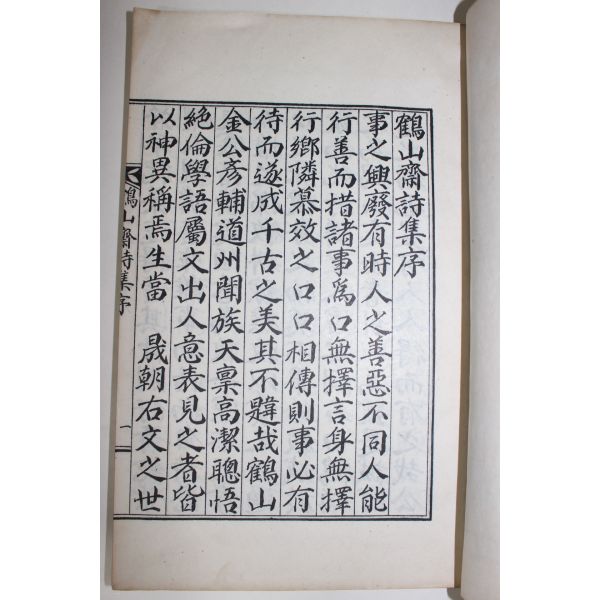 鶴山齋詩集序
事之興廢有時人之善惡不同人能
行善而措諸事爲口無擇言身無擇
行鄉隣慕效之口口相傳則事必有
待而遂成千古之美其不韙哉鶴山
金公彦輔道州聞族天禀高潔聰悟
絶倫學語屬文出人意表見之者皆
以神異稱焉生當 晟朝右文之世
鶴山齋詩集序 一